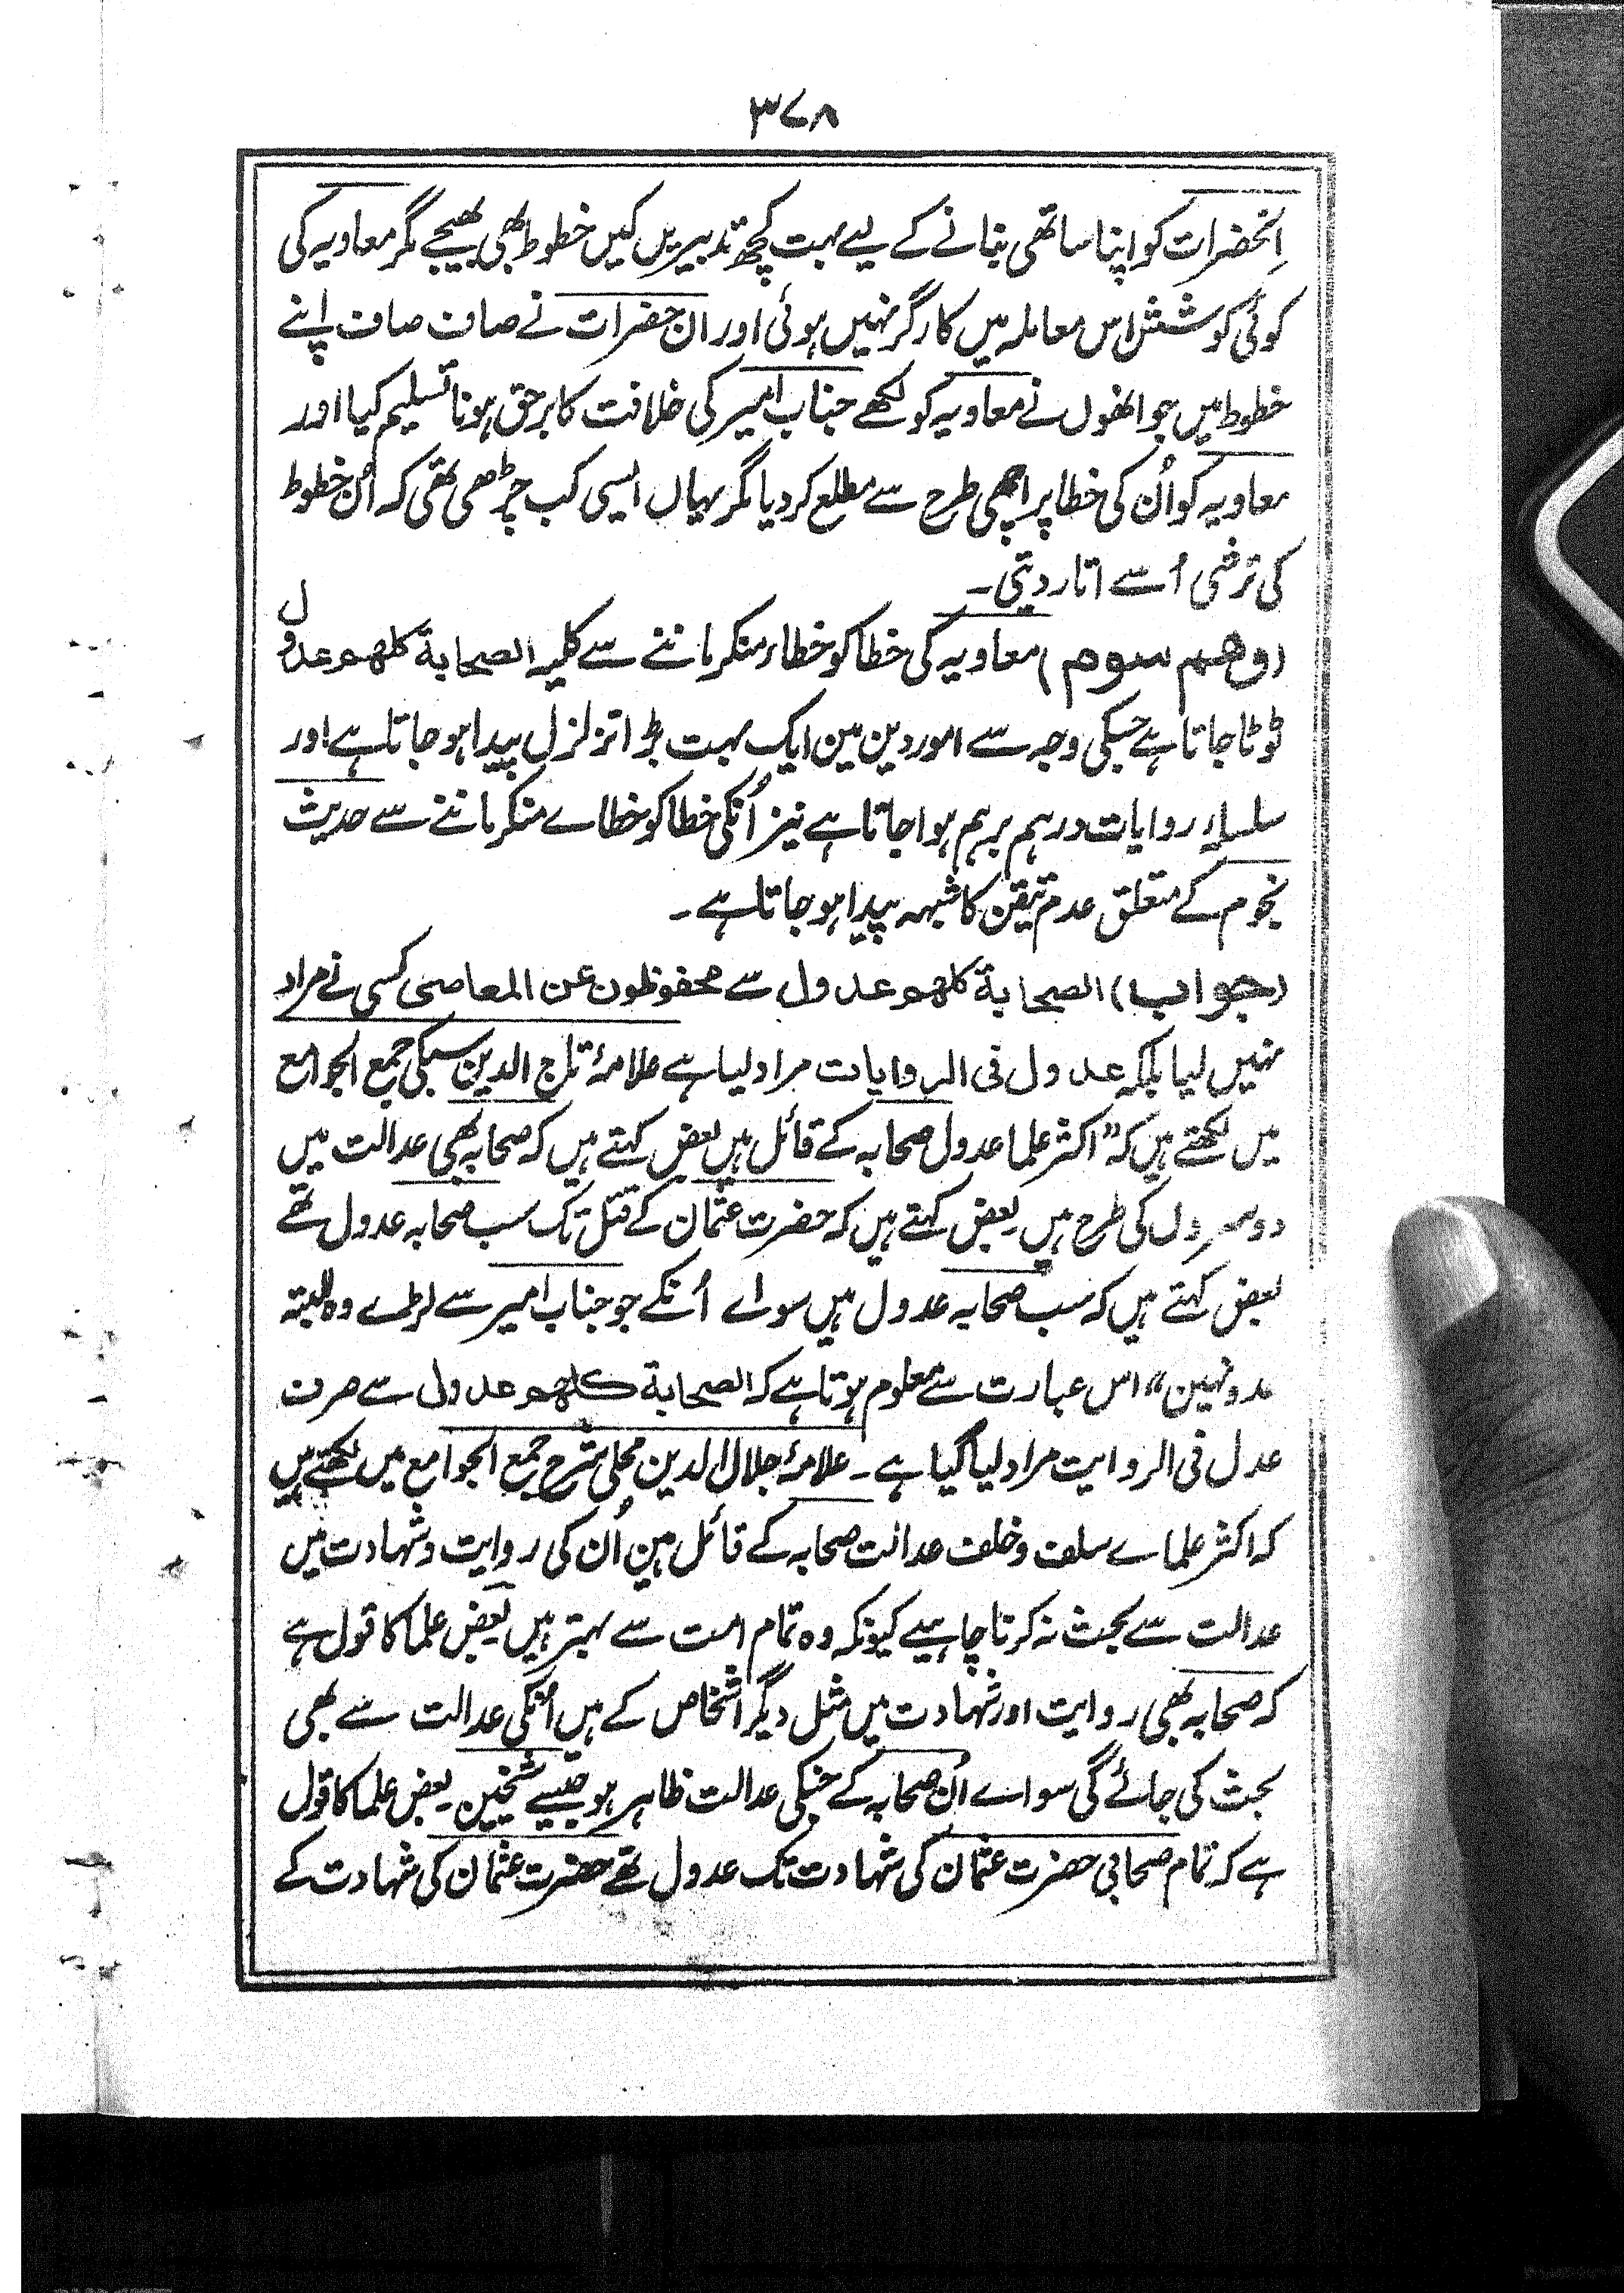 ۳۷۸
اِنحضرات کو اپنا ساتھی بنانے کے لیے بہت کچھ تدبیریں کیں خطوط بھی بھیجے مگر معاویہ کی
کوئی کوشش اس معاملہ میں کارگر نہیں ہوئی اور ان حضرات نے صاف صاف اپنے
خطوط میں جو انھوں نے معاویہ کو لکھے جناب امیر کی خلافت کا برحق ہونا تسلیم کیا اور
معاویہ کو اُن کی خطا پر اچھی طرح سے مطلع کر دیا مگر یہاں ایسی کب چڑھی تھی کہ اُن خطوط
کی ترشی اُسے اتار دیتی۔
(وھم سوم) معاویہ کی خطا کو خطاء منکر ماننے سے کلیہ الصحابة کلھم عدول
ٹوٹا جاتا ہے جسکی وجہ سے امور دین مین ایک بہت بڑا تزلزل پیدا ہو جاتا ہے اور
سلسلۂ روایات درہم برہم ہوا جاتا ہے نیز اُنکی خطا کو خطاے منکر ماننے سے حدیث
نجوم کے متعلق عدم تیقن کا شبہہ پیدا ہو جاتا ہے۔
(جواب) الصحابة کلھم عدول سے محفوظون عن المعاصی کسی نے مراد
نہیں لیا بلکہ عدول فی الروایات مراد لیا ہے علامۂ تاج الدین سبکی جمع الجوامع
میں لکھتے ہیں کہ "اکثر علما عدول صحابہ کے قائل ہیں بعض کہتے ہیں کہ صحابہ بھی عدالت میں
دوسروں کی طرح ہیں بعض کہتے ہیں کہ حضرت عثمان کے قتل تک سب صحابہ عدول تھے
بعض کہتے ہیں کہ سب صحابہ عدول ہیں سواے اُنکے جو جناب امیر سے لڑے وہ البتہ
عدو نہین" اس عبارت سے معلوم ہوتا ہے کہ الصحابة کلھم عدول سے صرف
عدل فی الروایت مراد لیا گیا ہے۔ علامۂ جلال الدین محلی شرح جمع الجوامع میں لکھتے ہیں
کہ اکثر علماے سلف و خلف عدالت صحابہ کے قائل ہین اُن کی روایت و شہادت میں
عدالت سے بحث نہ کرنا چاہیے کیونکہ وہ تمام امت سے بہتر ہیں بعض علما کا قول ہے
کہ صحابہ بھی روایت اور شہادت میں مثل دیگر اشخاص کے ہیں اُنکی عدالت سے بھی
بحث کی جائے گی سواے اُن صحابہ کے جنکی عدالت ظاہر ہو جیسے شیخین بعض علما کا قول
ہے کہ تمام صحابی حضرت عثمان کی شہادت تک عدول تھے حضرت عثمان کی شہادت کے